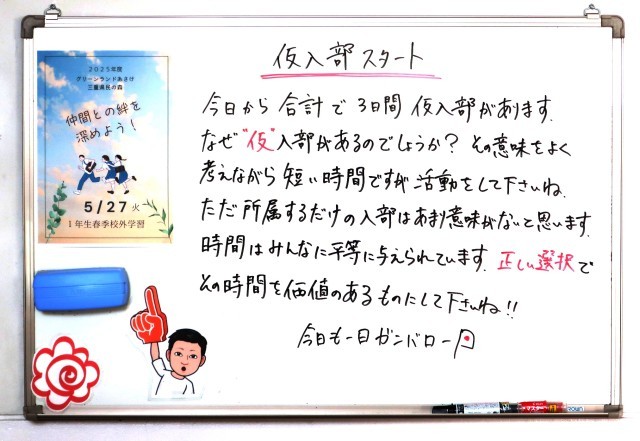 仮入部スタート
2025年度
グリーンランドあさけ
三重県民の森
仲間との絆を
深めよう!
5/27火
1年生春季校外学習
今日から合計で3日間仮入部があります.
なぜ"仮"入部があるのでしょうか?その意味をよく
考えながら短い時間ですが活動をして下さいね.
ただ所属するだけの入部はあまり意味がないと思います.
時間はみんなに平等に与えられています.正しい選択で
その時間を価値のあるものにして下さいね!!
今日も一日ガンバロー